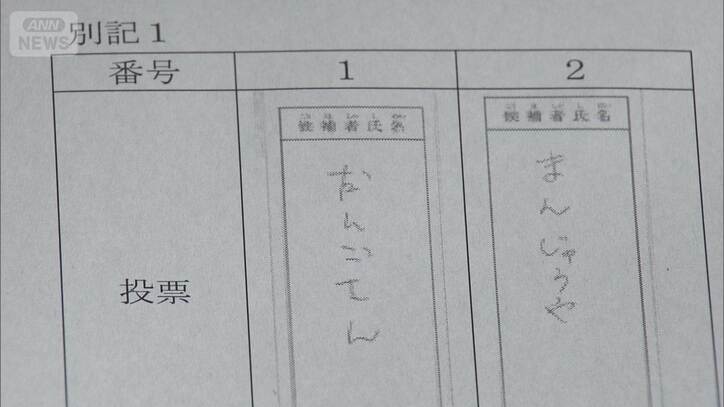 ANN NEWS
別記1
番号 1 2
候補者氏名 候補者氏名
投票
まんじゅうや